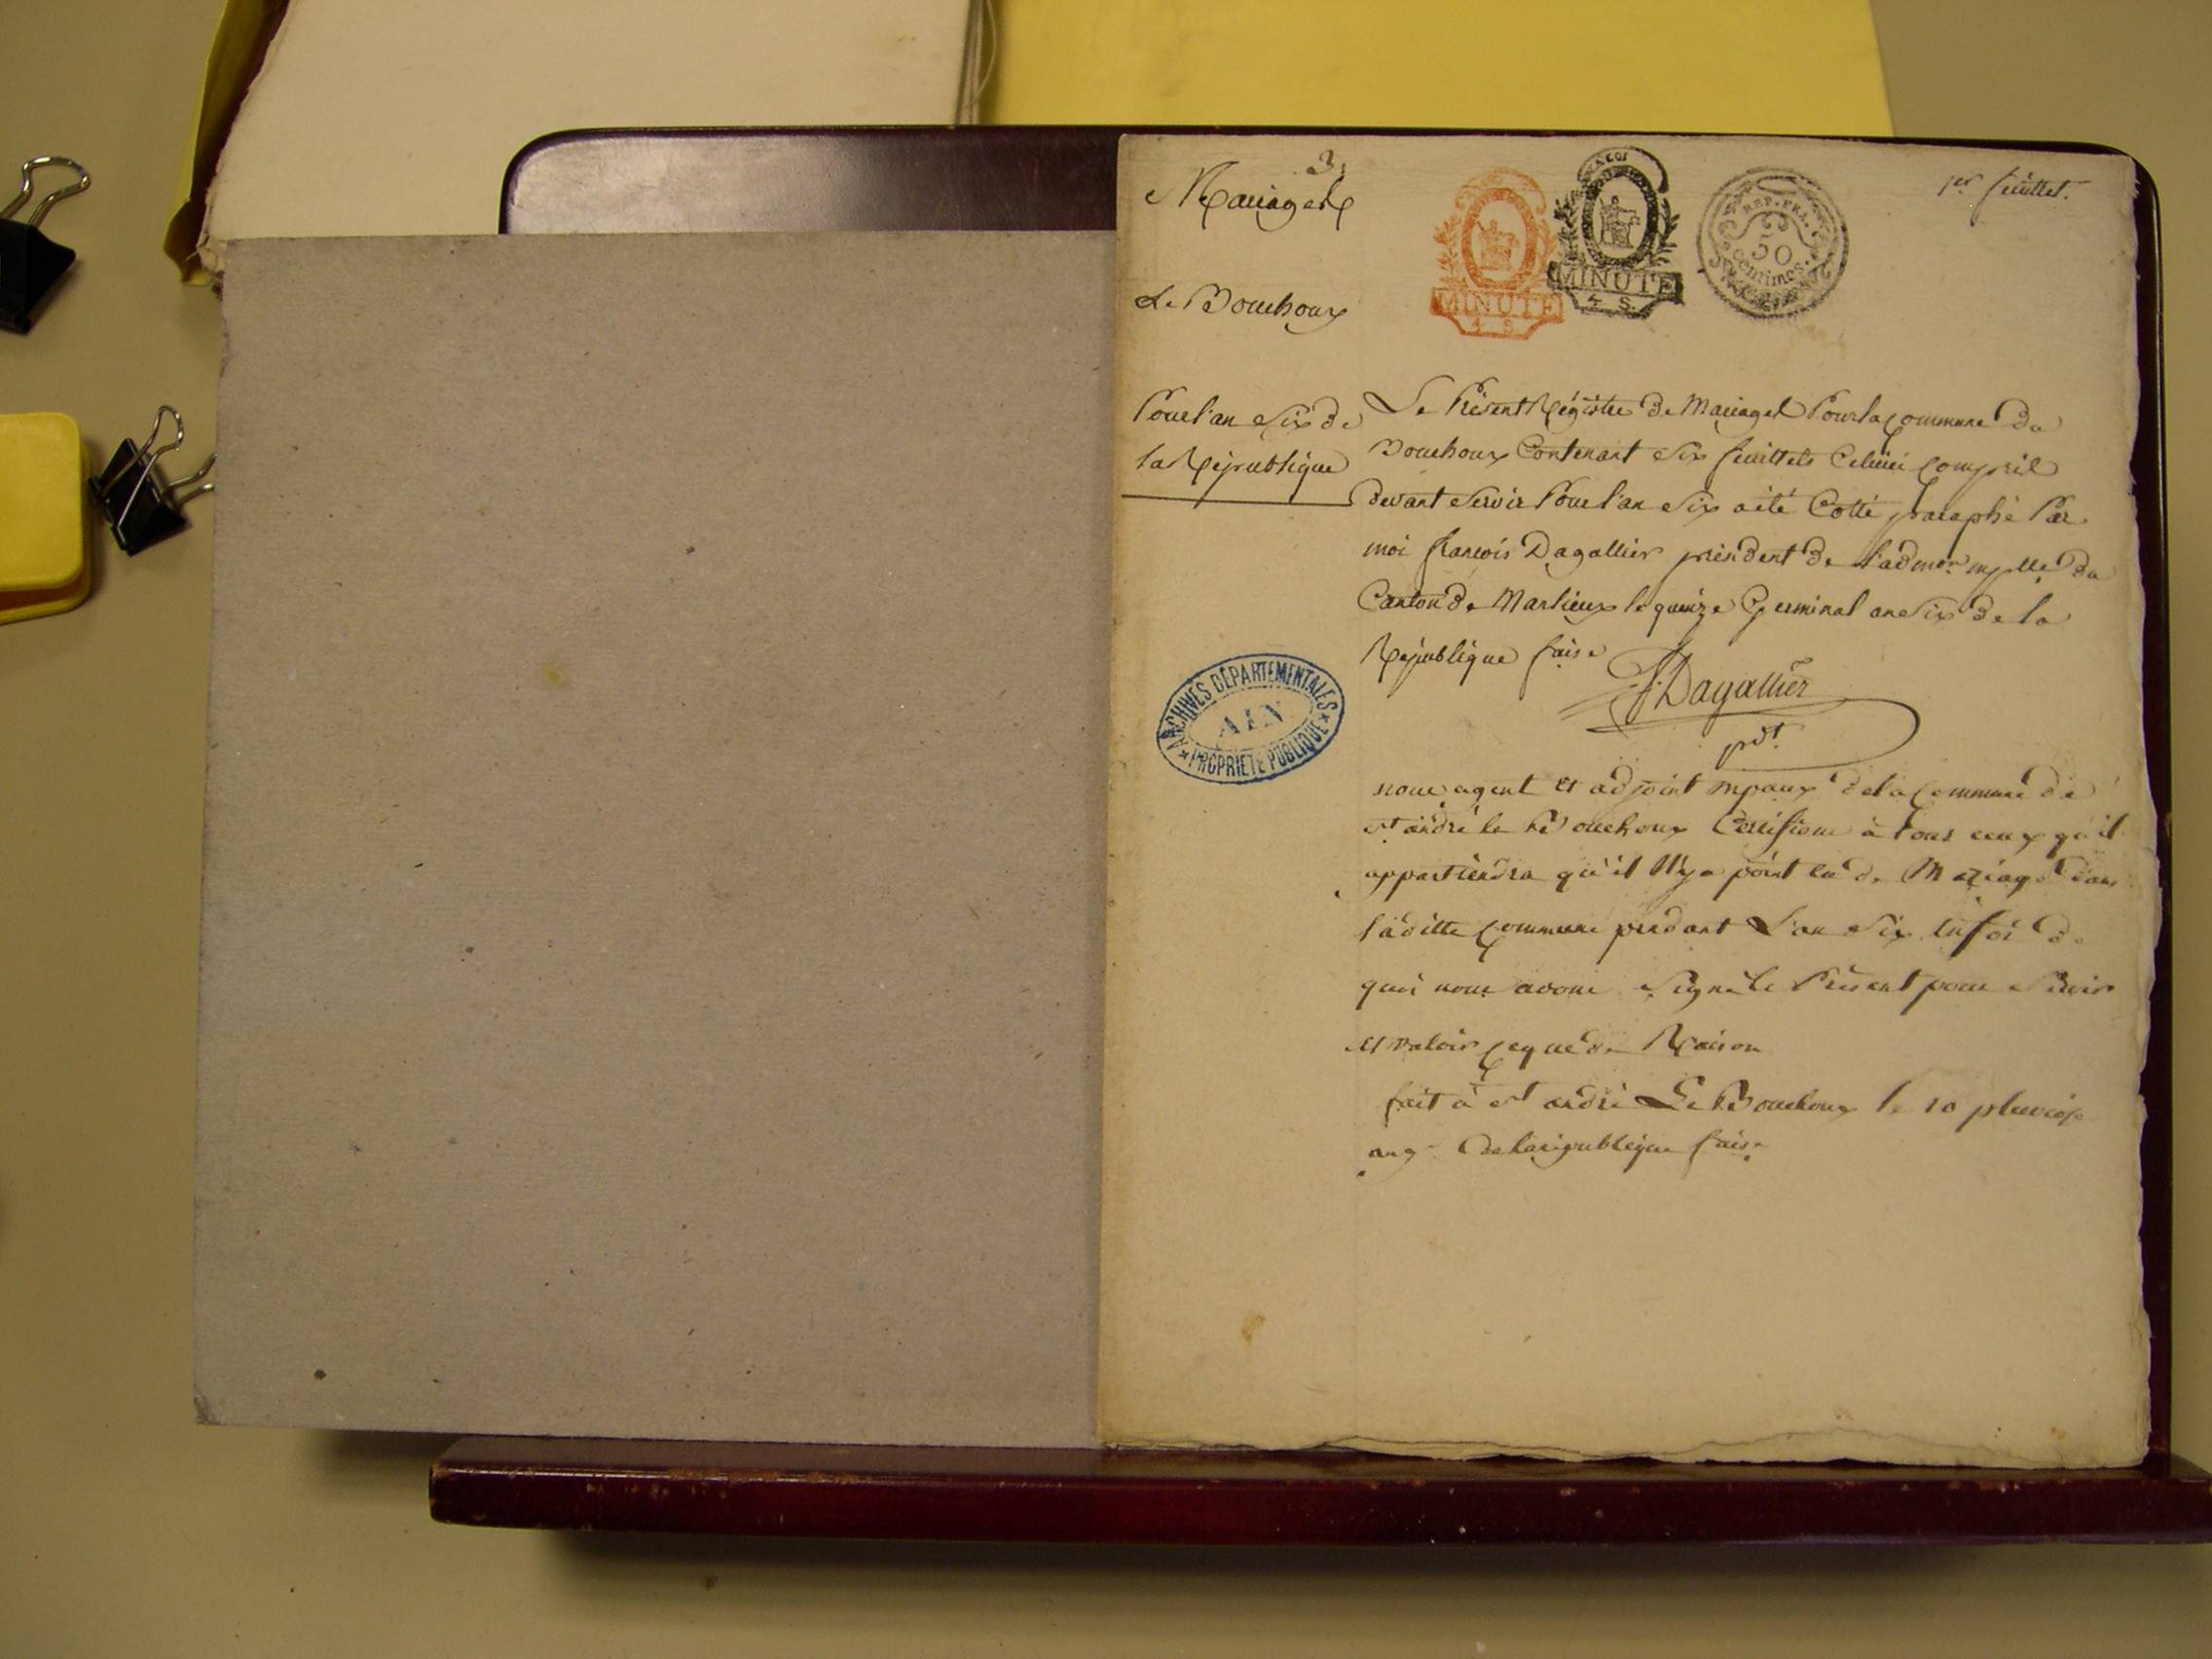 3
Mariages
1er feuillet.
MINUTE
4 S.
MINUTE
4 S.
REP. FRA.
50
centimes.
Le Bouchoux
Pour l'an Six de
la République
Le Présent Régistre de Mariages Pour la Commune du
Bouchoux Contenant Six feuillets Celuici Compris
devant Servir Pour l'an Six a été Cotté paraphé Par
moi françois Dagallier président de l'admon mplle du
Canton de Marlieux le quinze Germinal an Six de la
République fcaise
F. Dagallier
pdt
ARCHIVES DÉPARTEMENTALES
AIN
PROPRIÉTÉ PUBLIQUE
nous agent et adjoint mpaux de la Commune de
st andré le Bouchoux Certifions à tous ceux qu'il
appartiendra qu'il N'y a point eu de Mariage dans
laditte Commune pendant L'an Six En foi de
quoi nous avons Signé le Présent pour Servir
et valoir Ce que de Raison
fait à st andré Le Bouchoux le 10 pluviose
an 7 de la république fcaise